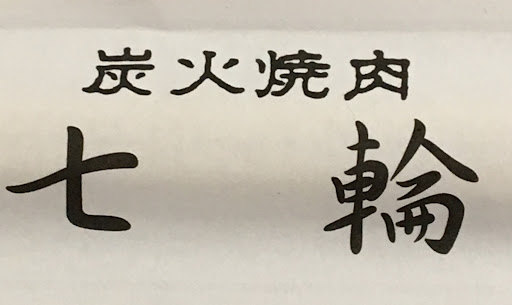 炭火焼肉
七輪